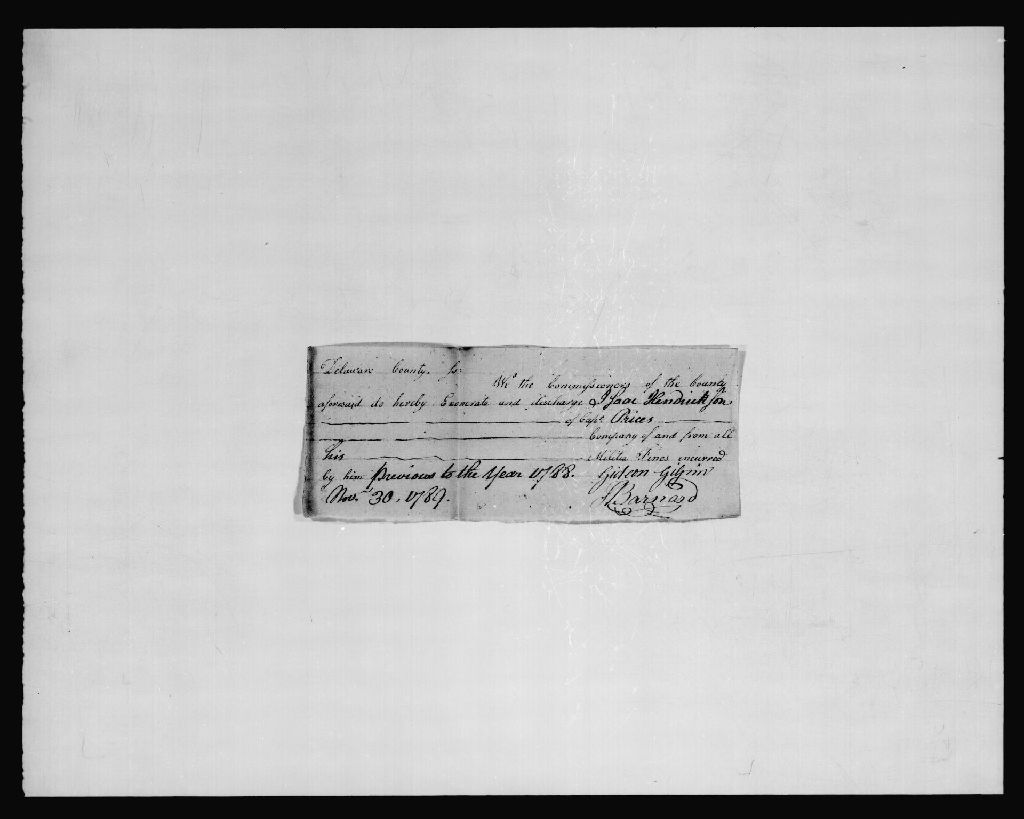 Delaware County. ss.
We the Commissioners of the County
aforesaid do hereby Exonerate and discharge Isaac Hendrickson
of Capt. Prices
Company of and from all
his Militia Fines incurred
by him previous to the Year 1788.
Nov. 30. 1789. Barnard